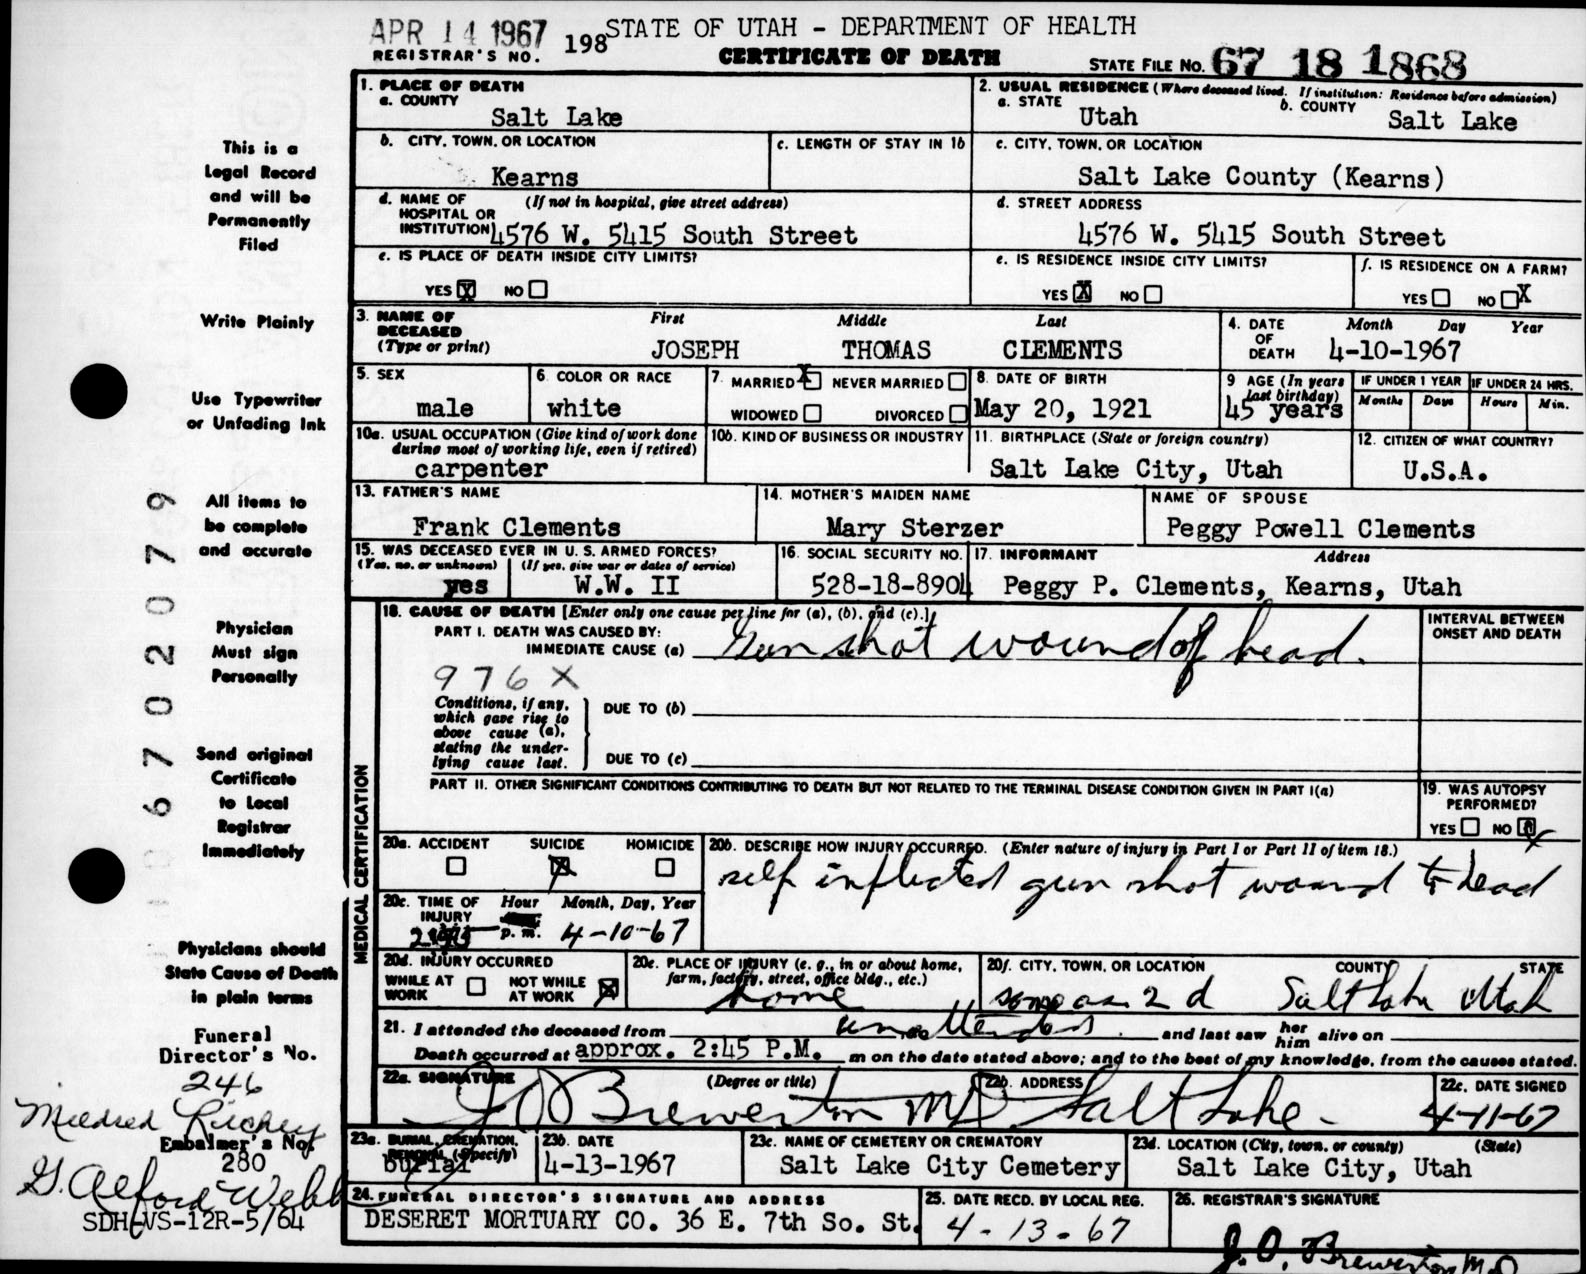 APR 14 1967 198 STATE OF UTAH - DEPARTMENT OF HEALTH
REGISTRAR'S NO. CERTIFICATE OF DEATH STATE FILE NO. 67 18 1868
This is a
Legal Record
and will be
Permanently
Filed
Write Plainly
Use Typewriter
or Unfading Ink
All items to
be complete
and accurate
Physician
Must sign
Personally
Send original
Certificate
to Local
Registrar
Immediately
Physicians should
State Cause of Death
in plain terms
6 7 0 2 0 7 9
Funeral
Director's No.
246
Mildred Richey
Embalmer's No.
280
G. Alford Webb
SDH-VS-12R-5/64
1. PLACE OF DEATH
a. COUNTY
Salt Lake
2. USUAL RESIDENCE (Where deceased lived. If institution: Residence before admission)
a. STATE b. COUNTY
Utah Salt Lake
b. CITY, TOWN, OR LOCATION c. LENGTH OF STAY IN 1b
Kearns
c. CITY, TOWN, OR LOCATION
Salt Lake County (Kearns)
d. NAME OF (If not in hospital, give street address)
HOSPITAL OR
INSTITUTION 4576 W. 5415 South Street
d. STREET ADDRESS
4576 W. 5415 South Street
e. IS PLACE OF DEATH INSIDE CITY LIMITS?
YES X NO
e. IS RESIDENCE INSIDE CITY LIMITS?
YES X NO
f. IS RESIDENCE ON A FARM?
YES NO X
3. NAME OF First Middle Last
DECEASED
(Type or print) JOSEPH THOMAS CLEMENTS
4. DATE Month Day Year
OF
DEATH 4-10-1967
5. SEX
male
6. COLOR OR RACE
white
7. MARRIED X NEVER MARRIED
WIDOWED DIVORCED
8. DATE OF BIRTH
May 20, 1921
9 AGE (In years
last birthday)
45 years
IF UNDER 1 YEAR IF UNDER 24 HRS.
Months Days Hours Min.
10a. USUAL OCCUPATION (Give kind of work done
during most of working life, even if retired)
carpenter
10b. KIND OF BUSINESS OR INDUSTRY
11. BIRTHPLACE (State or foreign country)
Salt Lake City, Utah
12. CITIZEN OF WHAT COUNTRY?
U.S.A.
13. FATHER'S NAME
Frank Clements
14. MOTHER'S MAIDEN NAME
Mary Sterzer
NAME OF SPOUSE
Peggy Powell Clements
15. WAS DECEASED EVER IN U. S. ARMED FORCES?
(Yes, no, or unknown) (If yes, give war or dates of service)
yes W.W. II
16. SOCIAL SECURITY NO.
528-18-8904
17. INFORMANT Address
Peggy P. Clements, Kearns, Utah
MEDICAL CERTIFICATION
18. CAUSE OF DEATH [Enter only one cause per line for (a), (b), and (c).]
PART I. DEATH WAS CAUSED BY:
IMMEDIATE CAUSE (a) Gun shot wound of head.
976X
Conditions, if any,
which gave rise to
above cause (a),
stating the under-
lying cause last.
DUE TO (b)
DUE TO (c)
INTERVAL BETWEEN
ONSET AND DEATH
PART II. OTHER SIGNIFICANT CONDITIONS CONTRIBUTING TO DEATH BUT NOT RELATED TO THE TERMINAL DISEASE CONDITION GIVEN IN PART I(a)
19. WAS AUTOPSY
PERFORMED?
YES NO X
20a. ACCIDENT SUICIDE HOMICIDE
X
20b. DESCRIBE HOW INJURY OCCURRED. (Enter nature of injury in Part I or Part II of item 18.)
self inflicted gun shot wound to head
20c. TIME OF Hour Month, Day, Year
INJURY
p. m. 4-10-67
20d. INJURY OCCURRED
WHILE AT NOT WHILE
WORK AT WORK X
20e. PLACE OF INJURY (e. g., in or about home,
farm, factory, street, office bldg., etc.)
home
20f. CITY, TOWN, OR LOCATION COUNTY STATE
same as 2 d Salt Lake Utah
21. I attended the deceased from unattended and last saw her him alive on
Death occurred at approx. 2:45 P.M. m on the date stated above; and to the best of my knowledge, from the causes stated.
22a. SIGNATURE (Degree or title)
J O Brewerton MD
22b. ADDRESS
Salt Lake
22c. DATE SIGNED
4-11-67
23a. BURIAL, CREMATION,
REMOVAL (Specify)
burial
23b. DATE
4-13-1967
23c. NAME OF CEMETERY OR CREMATORY
Salt Lake City Cemetery
23d. LOCATION (City, town, or county) (State)
Salt Lake City, Utah
24. FUNERAL DIRECTOR'S SIGNATURE AND ADDRESS
DESERET MORTUARY CO. 36 E. 7th So. St.
25. DATE RECD. BY LOCAL REG.
4-13-67
26. REGISTRAR'S SIGNATURE
J. O. Brewerton M.D